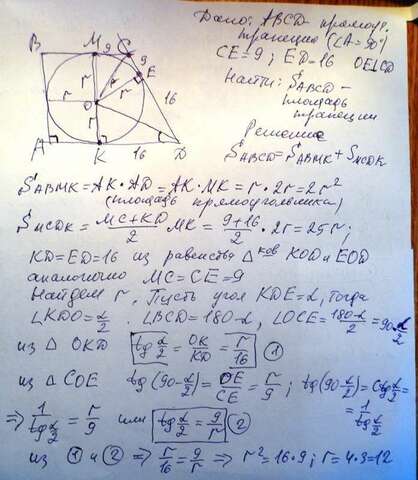 Дано: ABCD прямоуг.
трапеция (∠A = 90°)
CE = 9; ED = 16 OE⊥CD
Найти: S ABCD –
площадь
трапеции
Решение
S ABCD = S ABMK + S MCDK
B M 9 C
9
E
r r r
O 16
r
A K 16 D
S ABMK = AK·AD = AK·MK = r·2r = 2r²
(площадь прямоугольника)
S MCDK = (MC+KD)/2 MK = (9+16)/2 · 2r = 25r;
KD = ED = 16 из равенства Δ ков KOD и EOD
аналогично MC = CE = 9
Найдем r. Пусть угол KDE = α, тогда
∠KDO = α/2. ∠BCD = 180-α, ∠OCE = (180-α)/2 = 90-α/2
из Δ OKD tg α/2 = OK/KD = r/16 ①
из Δ COE tg(90-α/2) = OE/CE = r/9; tg(90-α/2) = ctg α/2 =
= 1/tg α/2
⇒ 1/tg α/2 = r/9 или tg α/2 = 9/r ②
из ① и ② ⇒ r/16 = 9/r ⇒ r² = 16·9; r = 4·3 = 12